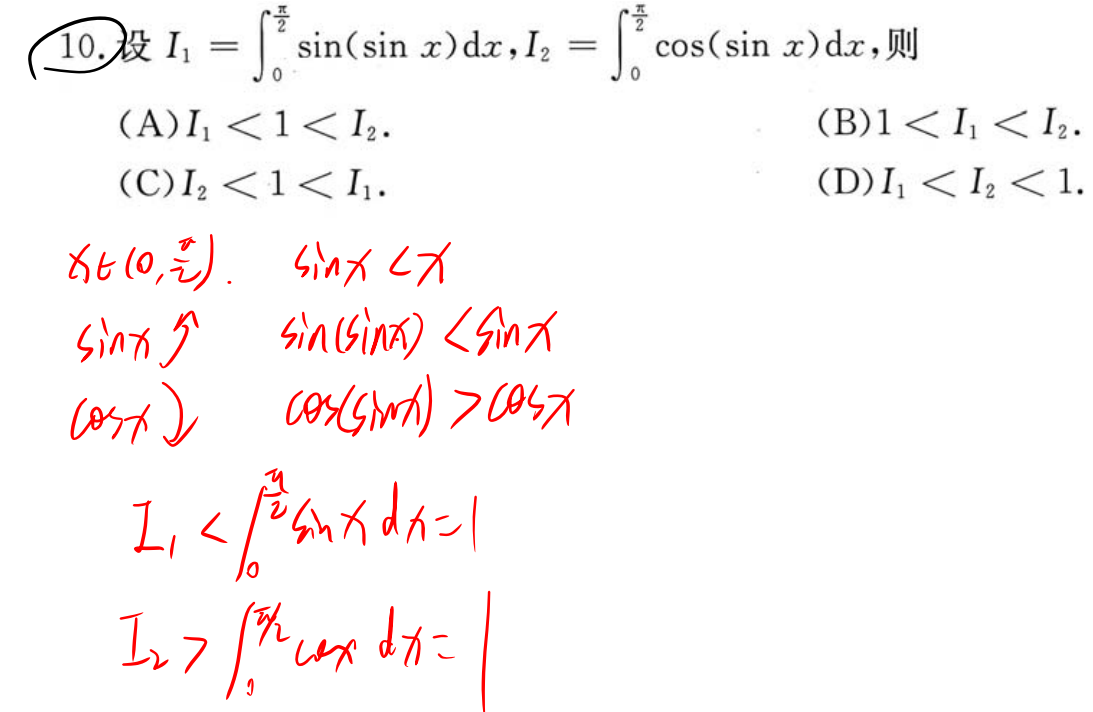 10. 设 I₁ = ∫₀^{π/2} sin(sin x)dx, I₂ = ∫₀^{π/2} cos(sin x)dx, 则
(A) I₁ < 1 < I₂. (B) 1 < I₁ < I₂.
(C) I₂ < 1 < I₁. (D) I₁ < I₂ < 1.
x∈(0, π/2). sinx < x
sinx ↗ sin(sinx) < sinx
cosx ↘ cos(sinx) > cosx
I₁ < ∫₀^{π/2} sinx dx = 1
I₂ > ∫₀^{π/2} cosx dx = 1